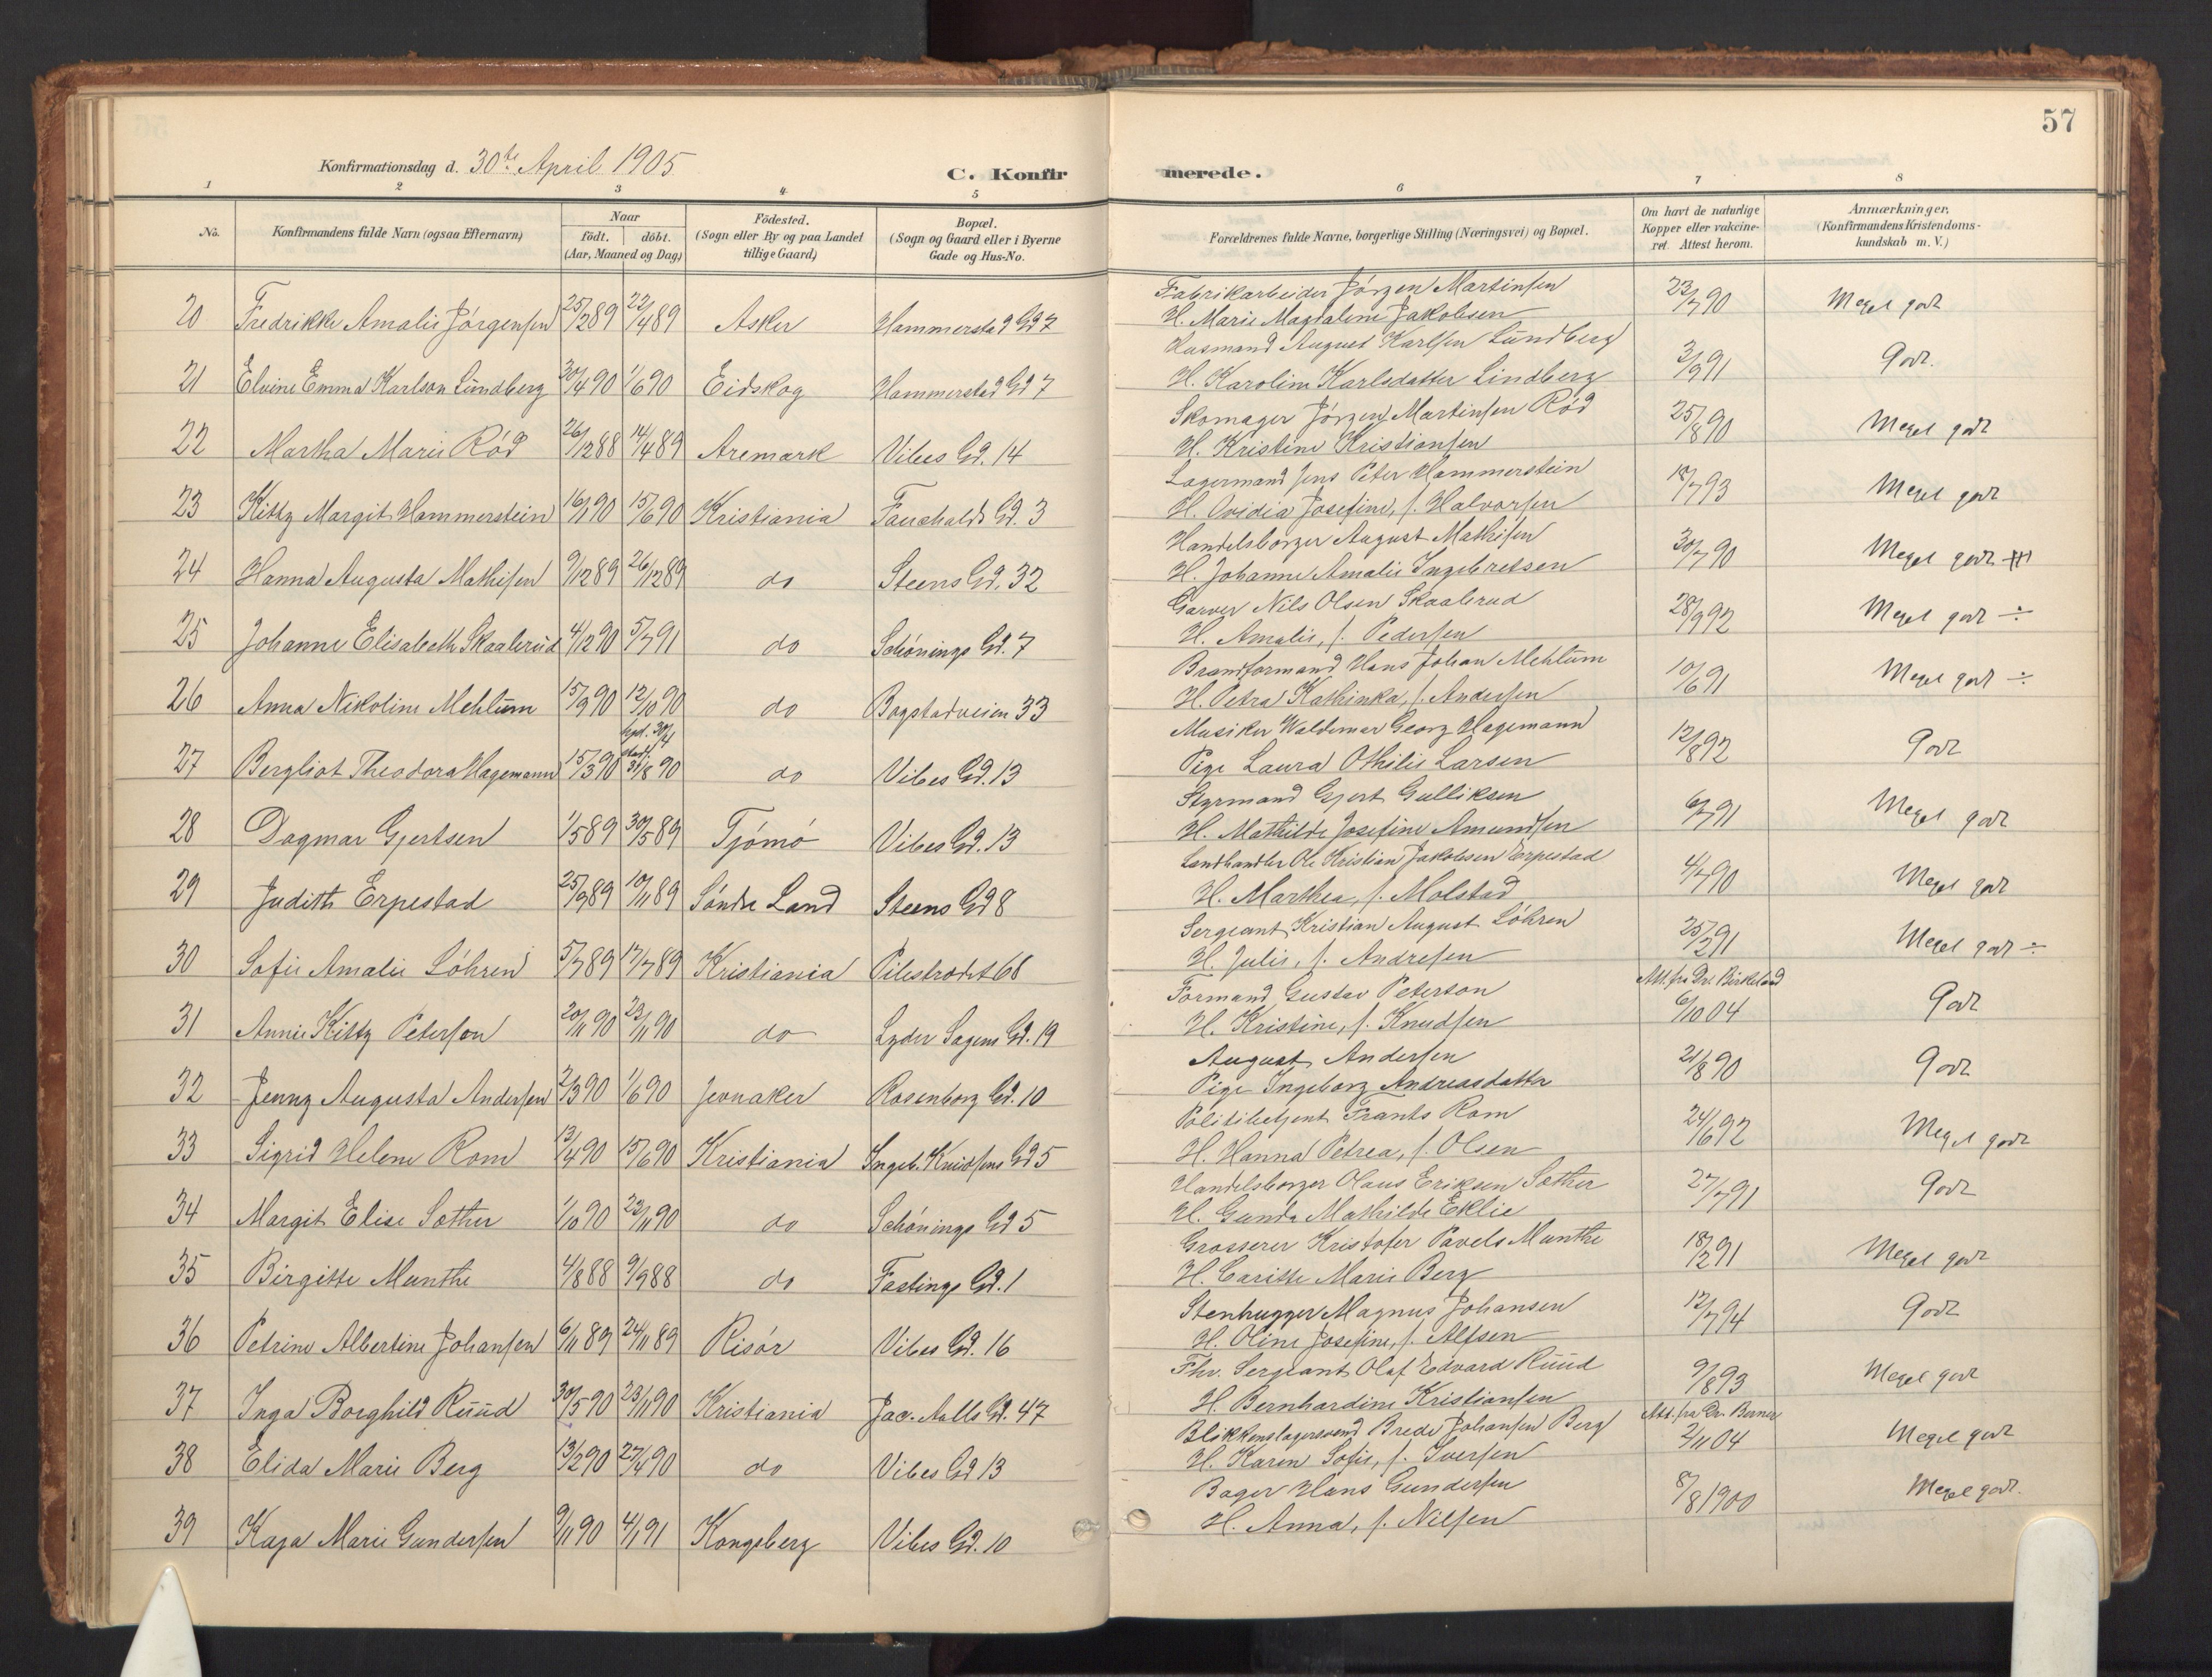 57
Konfirmationsdag d. 30te April 1905
C. Konfir
merede.
1 2 3 4 5 6 7 8
No.
Konfirmandens fulde Navn (ogsaa Efternavn)
Naar
født. døbt.
(Aar, Maaned og Dag)
Fødested.
(Sogn eller By og paa Landet
tillige Gaard)
Bopæl.
(Sogn og Gaard eller i Byerne
Gade og Hus-No.
Forældrenes fulde Navne, borgerlige Stilling (Næringsvei) og Bopæl.
Om havt de naturlige
Kopper eller vakcine-
ret. Attest herom.
Anmærkninger,
(Konfirmandens Kristendoms-
kundskab m. V.)
Fabrikarbeider Jørgen Martinsen
20 Fredrikke Amalie Jørgensen 25/2 89 22/4 89 Asker Hammerstad Gd 7 H. Marie Magdalene Jakobsen 23/7 90 Meget godt
Husmand August Karlsen Lundberg
21 Elvine Emma Karlson Lundberg 30/4 90 1/6 90 Eidskog Hammerstad Gd 7 H. Karoline Karlsdatter Lindberg 3/9 91 Godt.
Skomager Jørgen Martinsen Rød
22 Martha Marie Rød 26/12 88 14/4 89 Aremark Vibes Gd. 14 H. Kristine Kristiansen 25/8 90 Meget godt
Lagermand Jens Peter Hammerstein
23 Kitty Margit Hammerstein 16/1 90 15/6 90 Kristiania Fauchalds Gd. 3 H. Ovidia Josefine, f. Halvorsen 18/7 93 Meget godt
Handelsborger August Mathisen
24 Hanna Augusta Mathisen 9/12 89 26/12 89 do Steens Gd. 32 H. Johanne Amalie Ingebretsen 30/7 90 Meget godt
Garver Nils Olsen Skaalerud
25 Johanne Elisabeth Skaalerud 4/12 90 5/7 91 do Schønings Gd. 7 H. Amalie, f. Pedersen 28/9 92 Meget godt ÷
Brandformand Hans Johan Mehlum
26 Anna Nikoline Mehlum 15/9 90 12/10 90 do Bogstadveien 33 H. Petra Kathinka, f. Andersen 10/6 91 Meget godt ÷
Musiker Waldemar Georg Hagemann
27 Bergliot Theodora Hagemann 15/3 90 hjd. 30/4 stadf. 31/8 90 do Vibes Gd. 13 Pige Laura Othilie Larsen 12/8 92 Godt
Styrmand Gjert Gulliksen
28 Dagmar Gjertsen 1/5 89 30/5 89 Tjømø Vibes Gd. 13 H. Mathilde Josefine Amundsen 6/7 91 Meget godt
Landhandler Ole Kristian Jakobsen Erpestad
29 Judith Erpestad 25/9 89 10/11 89 Søndre Land Steens Gd 8 H. Marthea, f. Molstad 4/7 90 Meget godt
Sergeant Kristian August Løhren
30 Sofie Amalie Løhren 5/7 89 17/7 89 Kristiania Pilestrædet 68 H. Julie, f. Andresen 25/2 91 Meget godt ÷
Formand Gustav Peterson Att. fra Dr. Birkeland
31 Annie Kitty Peterson 20/11 90 23/11 90 do Lyder Sagens Gd. 19 H. Kristine, f. Knudsen 6/10 04 Godt
August Andersen
32 Jenny Augusta Andersen 2/3 90 1/6 90 Jevnaker Rosenborg Gd. 10 Pige Ingeborg Andreasdatter 21/8 90 Godt
Politibetjent Frants Rom
33 Sigrid Helene Rom 13/4 90 15/6 90 Kristiania Ingeb. Knudsens Gd 5 H. Hanna Petrea, f. Olsen 24/6 92 Meget godt
Handelsborger Olaus Eriksen Sæther
34 Margit Elise Sæther 1/10 90 23/11 90 do Schønings Gd 5 H. Gunda Mathilde Eklie 27/7 91 Godt
Grosserer Kristofer Pavels Munthe
35 Birgitte Munthe 4/8 88 9/9 88 do Fastings Gd. 1 H. Caritte Marie Berg 18/2 91 Meget godt
Stenhugger Magnus Johansen
36 Petrine Albertine Johansen 6/11 89 24/11 89 Risør Vibes Gd. 16 H. Oline Josefine, f. Alfsen 12/7 94 Godt
Fhv. Sergeant Olaf Edvard Ruud
37 Inga Borghild Ruud 30/5 90 23/11 90 Kristiania Jac. Aalls Gd. 47 H. Bernhardine Kristiansen 9/8 93 Meget godt
Blikkenslagersvend Brede Johansen Berg Att. fra Dr. Berner
38 Elida Marie Berg 13/2 90 27/4 90 do Vibes Gd 13 H. Karen Sofie, f. Iversen 2/11 04 Meget godt
Bager Hans Gundersen
39 Kaja Marie Gundersen 9/11 90 4/1 91 Kongsberg Vibes Gd. 10 H. Anna, f. Nilsen 8/8 1900 Meget godt.